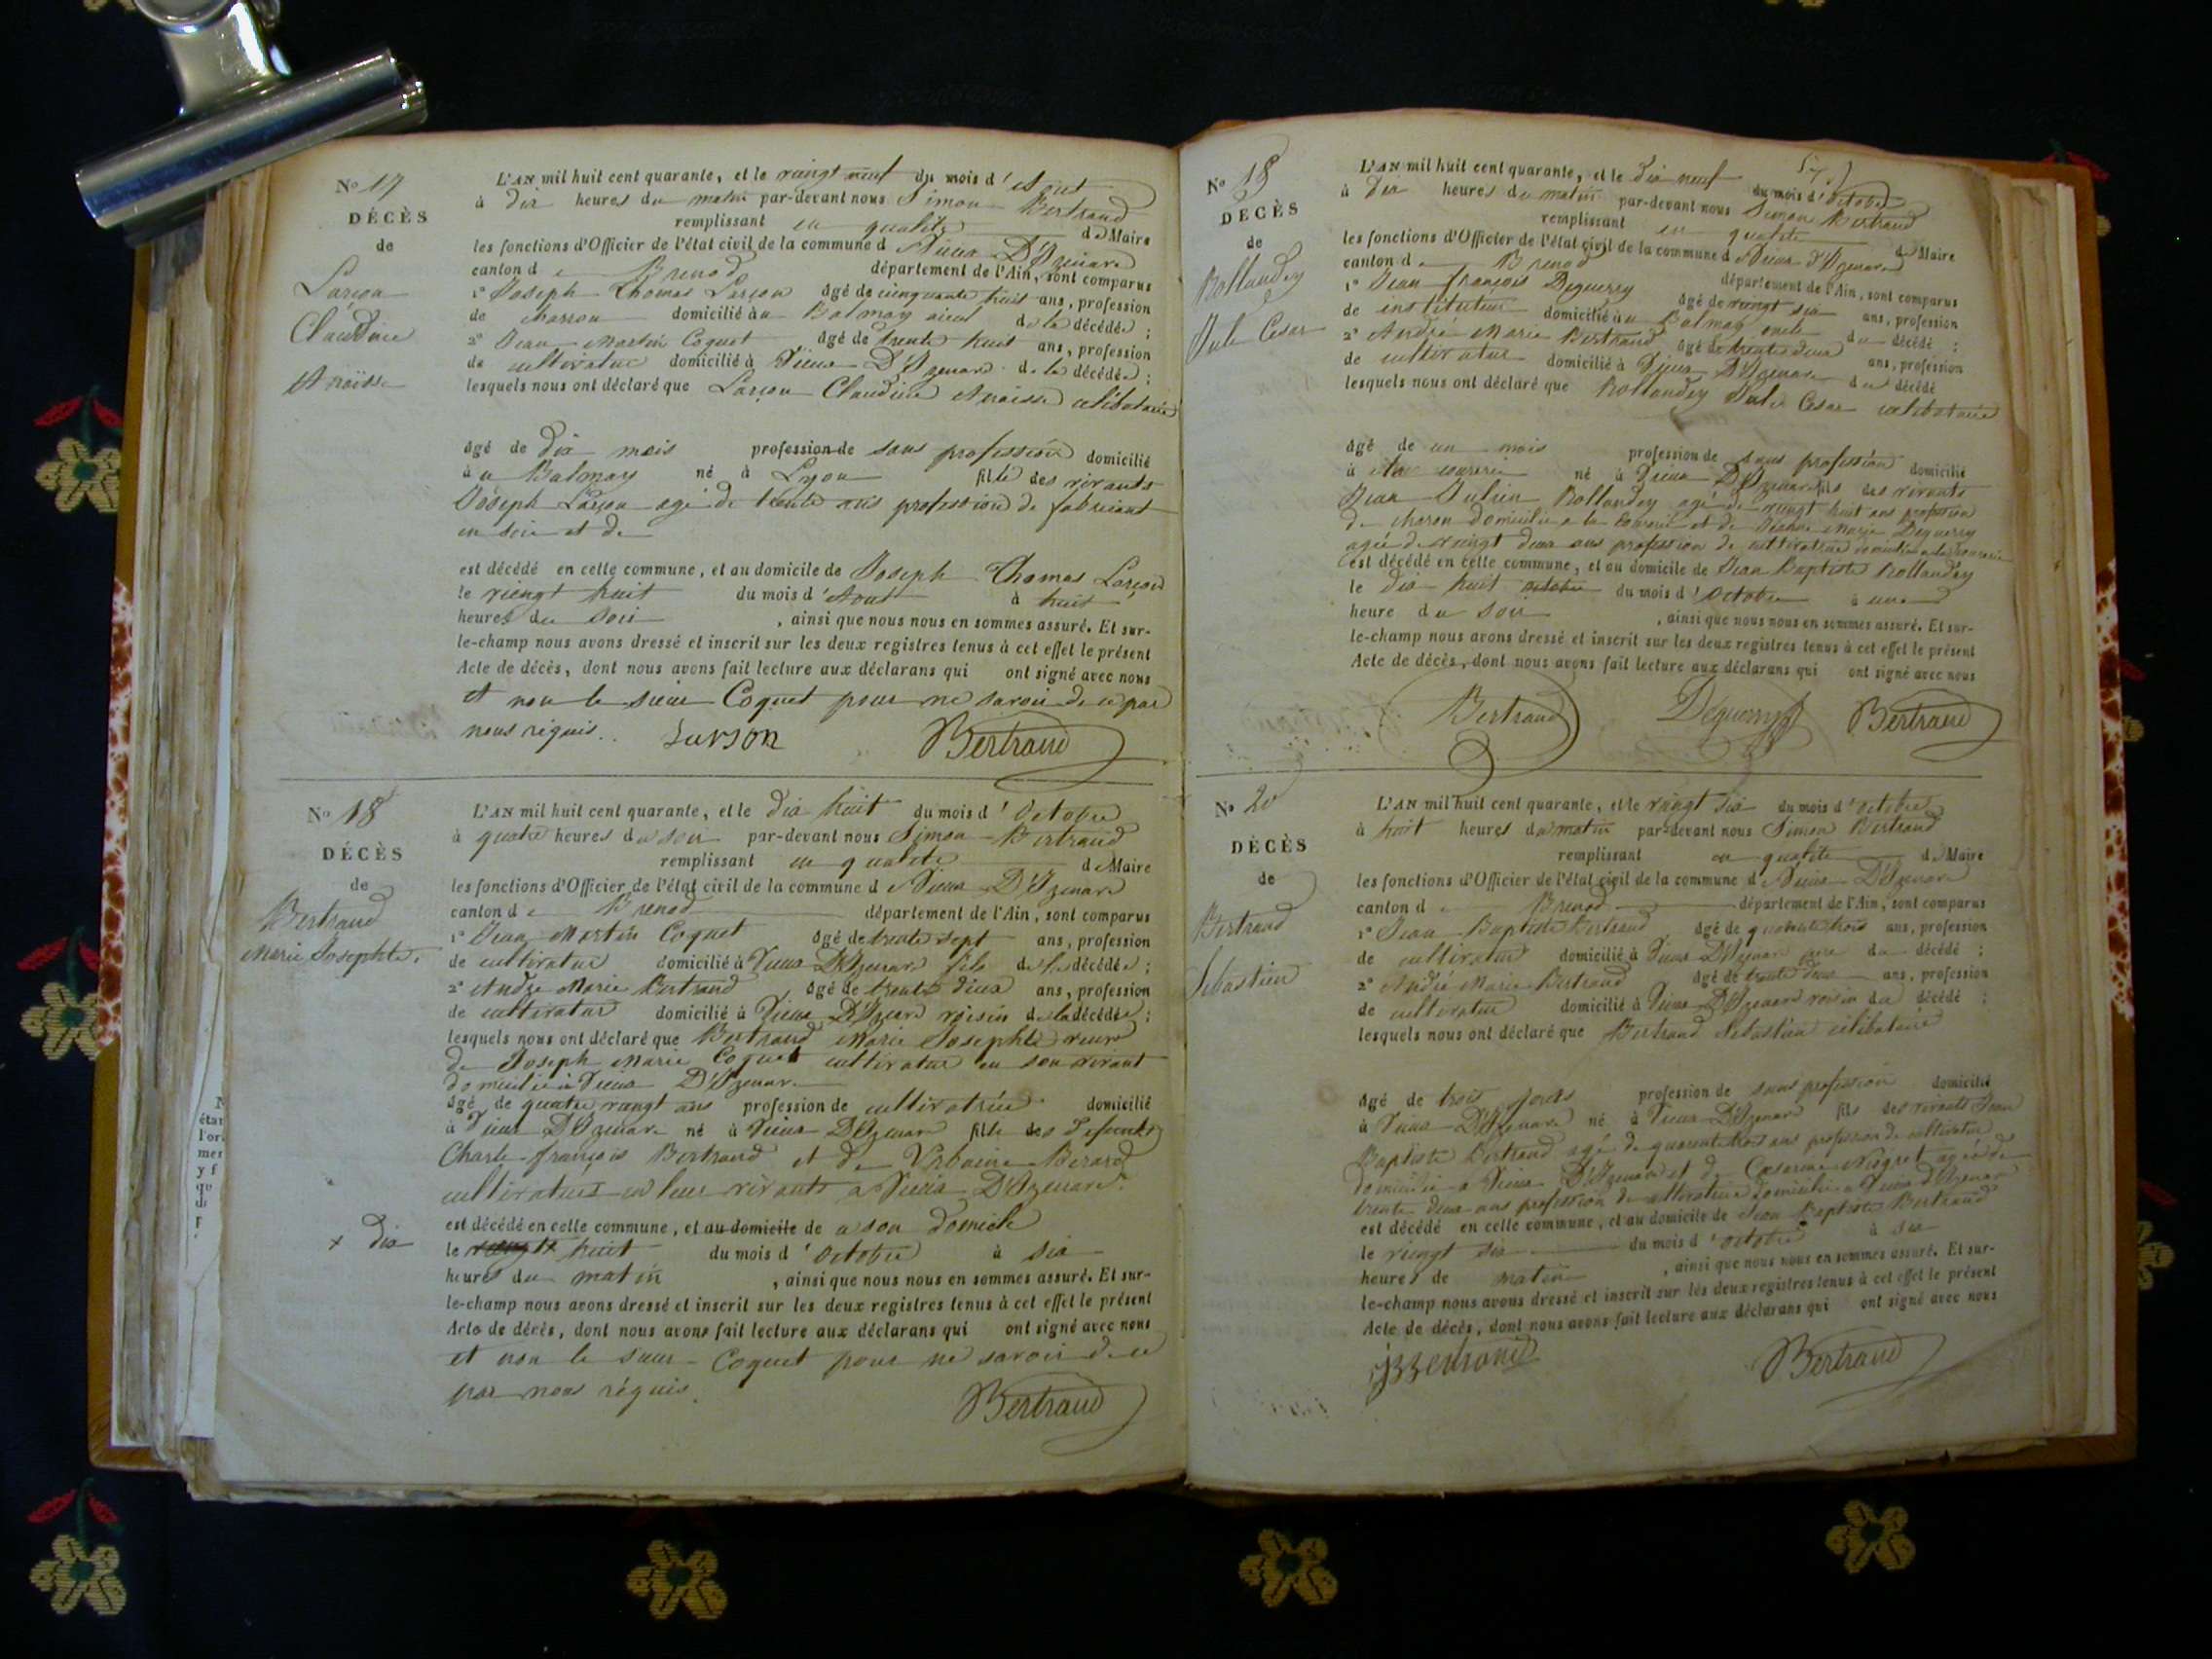 No 17
DÉCÈS
de
Larçon
Claudine
Anaïsse
L'AN mil huit cent quarante, et le vingt neuf du mois d'Aout
à dix heures du matin par-devant nous Simon Bertrand
remplissant en qualité de Maire
les fonctions d'Officier de l'état civil de la commune de Vieux D'Izenave
canton de Brenod département de l'Ain, sont comparus
1° Joseph Thomas Larçon âgé de cinquante huit ans, profession
de charron domicilié au Balmay aieul de la décédée ;
2° Jean Martin Coquet âgé de trente huit ans, profession
de cultivateur domicilié à Vieux D'Izenave de la décédée ;
lesquels nous ont déclaré que Larçon Claudine Anaisse célibataire
âgé de dix mois profession de sans profession domicilié
à u Balmay né à Lyon fille des vivants
Joseph Larçon agé de trente ans profession de fabricant
en soie et de
est décédé en cette commune, et au domicile de Joseph Thomas Larçon
le vingt huit du mois d'Aout à huit
heures du soir , ainsi que nous nous en sommes assuré. Et sur-
le-champ nous avons dressé et inscrit sur les deux registres tenus à cet effet le présent
Acte de décès, dont nous avons fait lecture aux déclarans qui ont signé avec nous
et non le sieur Coquet pour ne savoir de ce par
nous réquis. Larson Bertrand
No 18
DÉCÈS
de
Bertrand
Marie Josephte
L'AN mil huit cent quarante, et le dix huit du mois d'Octobre
à quatre heures du soir par-devant nous Simon Bertrand
remplissant en qualité de Maire
les fonctions d'Officier de l'état civil de la commune de Vieux D'Izenave
canton de Brenod département de l'Ain, sont comparus
1° Jean Martin Coquet âgé de trente sept ans, profession
de cultivateur domicilié à Vieux D'Izenave fils de la décédée ;
2° André Marie Bertrand âgé de trente deux ans, profession
de cultivateur domicilié à Vieux D'Izenave voisin de la décédée ;
lesquels nous ont déclaré que Bertrand Marie Josephte veuve
de Joseph Marie Coquet cultivateur en son vivant
domicilié à Vieux D'Izenave
âgé de quatre vingt ans profession de cultivatrice domicilié
à Vieux D'Izenave né à Vieux D'Izenave fille des défunts
Charle françois Bertrand et de Urbaine Berard
cultivateurs en leur vivants à Vieux D'Izenave.
est décédé en cette commune, et au domicile de a son domicile
x dix
le vingt huit du mois d'Octobre à six
heures du matin , ainsi que nous nous en sommes assuré. Et sur-
le-champ nous avons dressé et inscrit sur les deux registres tenus à cet effet le présent
Acte de décès, dont nous avons fait lecture aux déclarans qui ont signé avec nous
et non le sieur Coquet pour ne savoir de ce
par nous réquis. Bertrand
No 18
DÉCÈS
de
Rollandey
Jule Cesar
L'AN mil huit cent quarante, et le dix neuf du mois d'Octobre
à dix heures du matin par-devant nous Simon Bertrand
remplissant en qualité de Maire
les fonctions d'Officier de l'état civil de la commune de Vieux d'Izenave
canton de Brenod département de l'Ain, sont comparus
1° Jean françois Deguerry âgé de vingt six ans, profession
de instituteur domicilié au Balmay oncle du décédé ;
2° André Marie Bertrand âgé de trente deux ans, profession
de cultivateur domicilié à Vieux D'Izenave du décédé
lesquels nous ont déclaré que Rollandey Jule Cesar célibataire
âgé de un mois profession de sans profession domicilié
à né à Vieux D'Izenave fils des vivants
Jean Julien Rollandey agé de vingt huit ans profession
de charon domicilié a la et de Jeanne Marie Deguerry
agée de vingt deux ans profession de cultivatrice domiciliée a la
est décédé en cette commune, et au domicile de Jean Baptiste Rollandey
le dix huit octobre du mois d'Octobre à une
heure du soir , ainsi que nous nous en sommes assuré. Et sur-
le-champ nous avons dressé et inscrit sur les deux registres tenus à cet effet le présent
Acte de décès, dont nous avons fait lecture aux déclarans qui ont signé avec nous
Bertrand Deguerry Bertrand
No 20
DÉCÈS
de
Bertrand
Sébastien
L'AN mil huit cent quarante, et le vingt six du mois d'Octobre
à huit heures du matin par-devant nous Simon Bertrand
remplissant en qualité de Maire
les fonctions d'Officier de l'état civil de la commune de Vieux D'Izenave
canton de Brenod département de l'Ain, sont comparus
1° Jean Baptiste Bertrand âgé de quarante trois ans, profession
de cultivateur domicilié à Vieux D'Izenave père du décédé ;
2° André Marie Bertrand âgé de trente deux ans, profession
de cultivateur domicilié à Vieux D'Izenave voisin du décédé ;
lesquels nous ont déclaré que Bertrand Sébastien célibataire
âgé de trois jours profession de sans profession domicilié
à Vieux D'Izenave né à Vieux D'Izenave fils des vivants Jean
Baptiste Bertrand agé de quarante trois ans profession de cultivateur
domicilié a Vieux D'Izenave et de agée de
trente deux ans profession de cultivatrice domiciliée a Vieux d'Izenave
est décédé en cette commune, et au domicile de Jean Baptiste Bertrand
le vingt six du mois d'octobre à six
heures de matin , ainsi que nous nous en sommes assuré. Et sur-
le-champ nous avons dressé et inscrit sur les deux registres tenus à cet effet le présent
Acte de décès, dont nous avons fait lecture aux déclarans qui ont signé avec nous
Bertrand